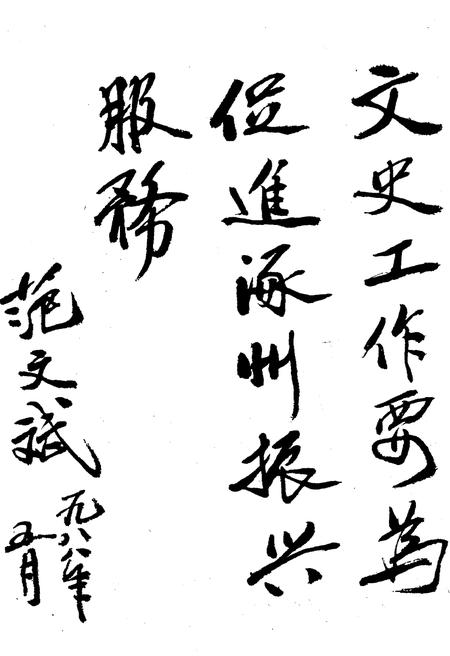 文史工作要為
促進涿州振兴
服務
范文斌
一九八八年
五月